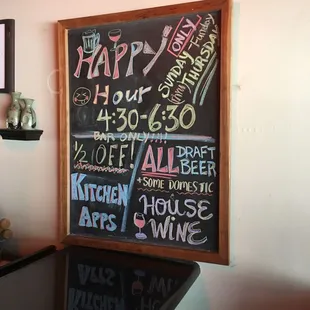 HAPPY
Hour
4:30-6:30
ONLY
SUNDAY Funday
thru
THURSDAY
BAR ONLY!!!!
1/2 OFF!
KITCHEN
APPS
ALL DRAFT
BEER
+ SOME DOMESTIC
HOUSE
WINE